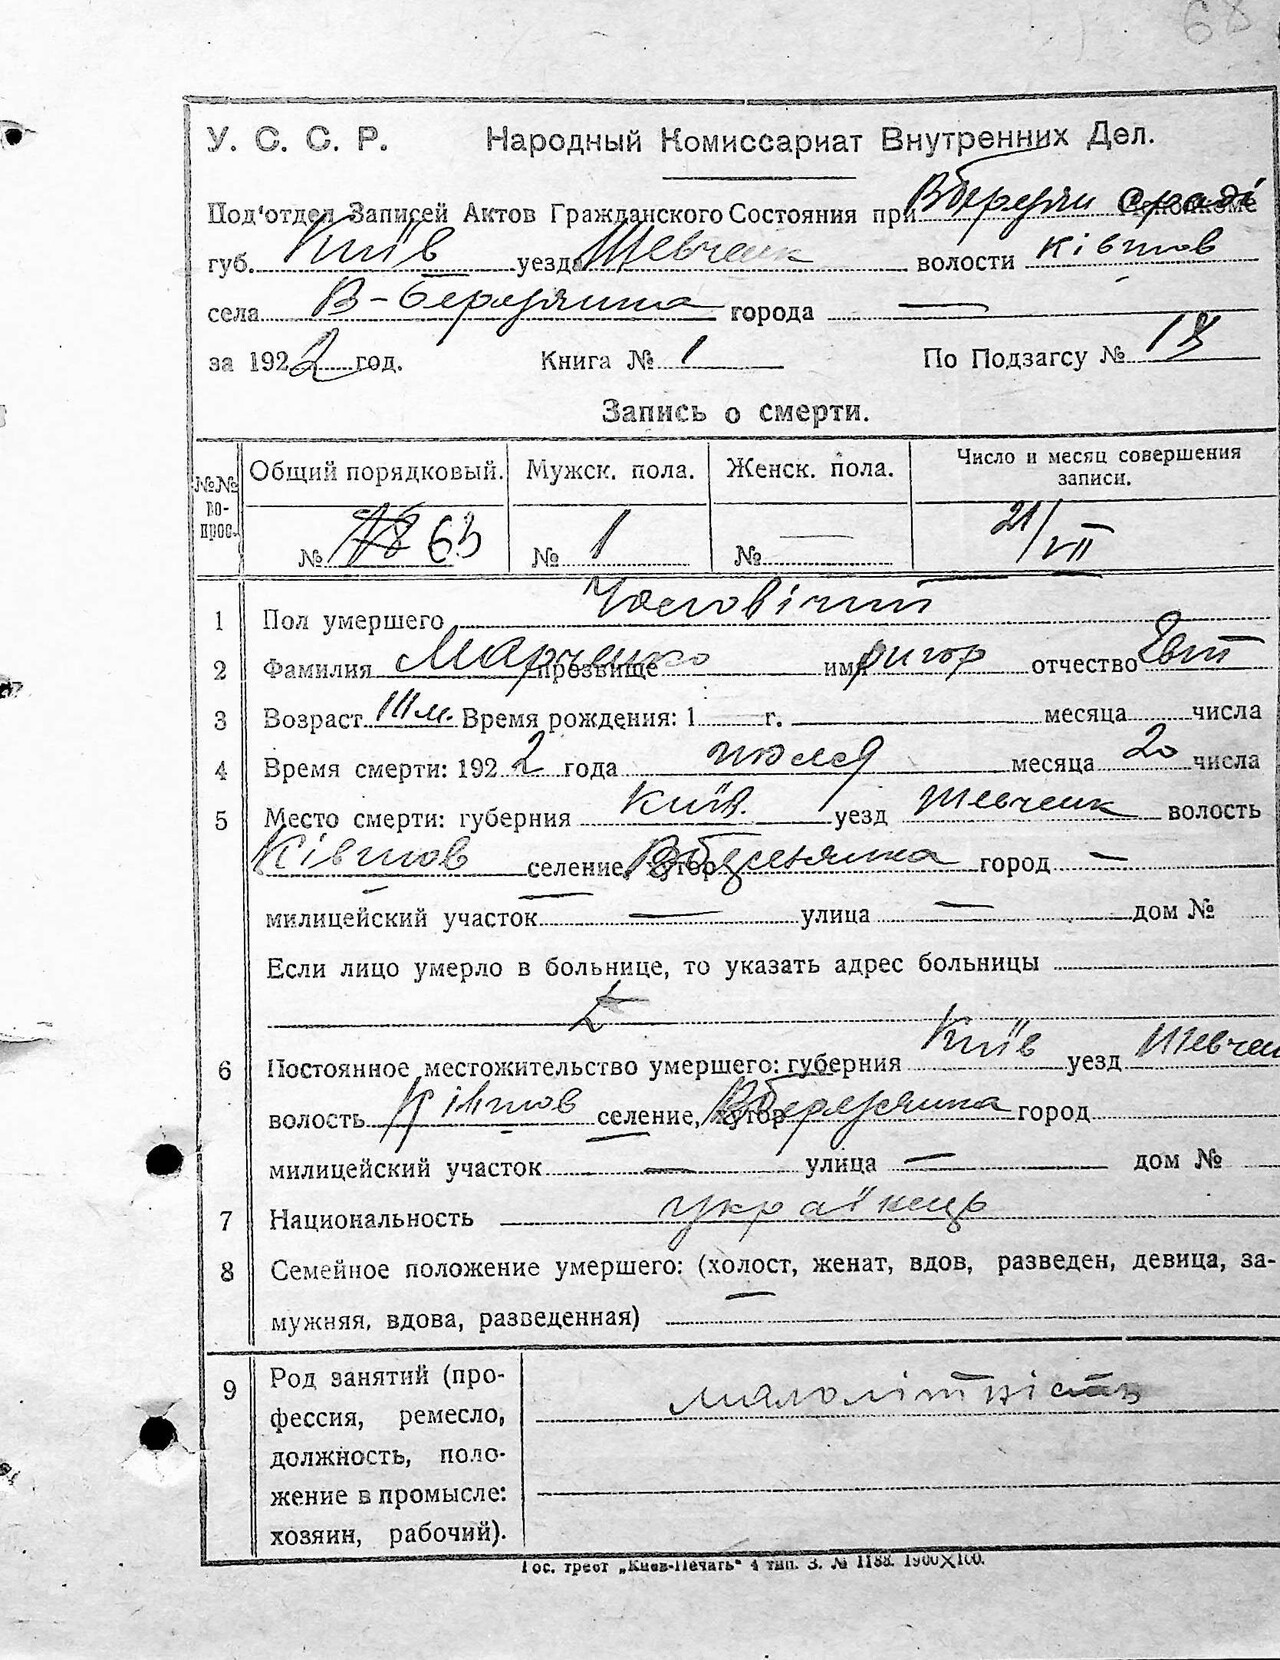 68
У. С. С. Р. Народный Комиссариат Внутренних Дел.
Под'отдел Записей Актов Гражданского Состояния при Исполкоме
губ. Київ уезда Шевченк волости Ківшов
села В-березянка города —
за 1922 год. Книга № 1 По Подзагсу № 18
Запись о смерти.
№№ вопрос. Общий порядковый. Мужск. пола. Женск. пола. Число и месяц совершения записи.
№ 63 № 1 № — 21/VII
1 Пол умершего Чоловічий
2 Фамилия Марченко прозвище имя ригор отчество Евт
3 Возраст III м. Время рождения: 1 г. месяца числа
4 Время смерти: 1922 года июля месяца 20 числа
5 Место смерти: губерния Київ. уезд Шевченк волость
Ківшов селение, хутор Вберезянка город —
милицейский участок — улица — дом №
Если лицо умерло в больнице, то указать адрес больницы
6 Постоянное местожительство умершего: губерния Київ уезд Шевчен
волость Ківшов селение, хутор Вберезянка город
милицейский участок — улица — дом №
7 Национальность українець
8 Семейное положение умершего: (холост, женат, вдов, разведен, девица, за-
мужняя, вдова, разведенная) —
9 Род занятий (про-
фессия, ремесло,
должность, поло-
жение в промысле:
хозяин, рабочий).
малолітність
Гос. трест „Киев-Печать" 4 тип. З. № 1188. 1900×100.